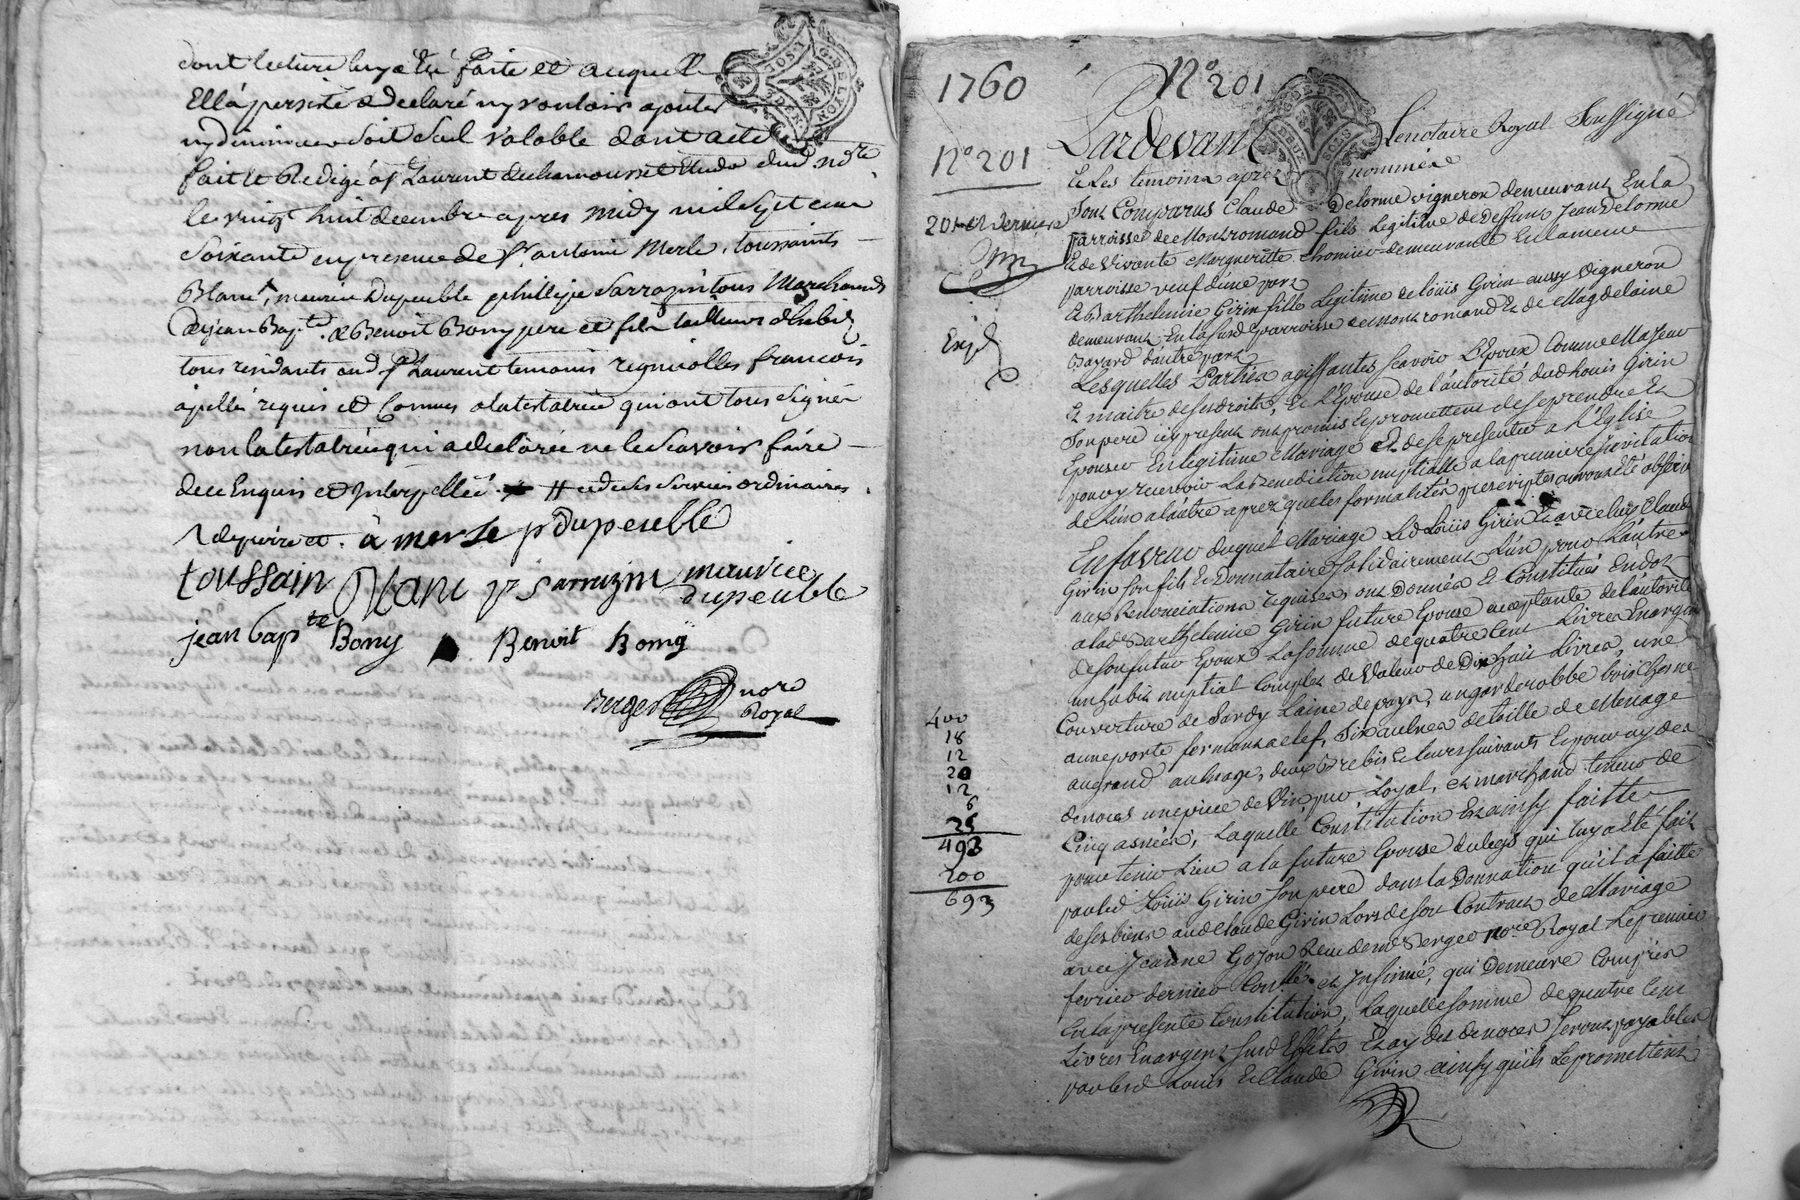 dont lecture luy a eté faite et a laquelle
Ell a persisté & declaré ny vouloir ajouter
ny diminuer soit seul valable dont acte
fait et Redigé a St Laurent dechamousset Etude dud. nore
le vingt huit decembre apres midy mil sept cent
soixante en presence de Sr antoine Merle, toussaints
Blanc, maurice Dupeuble phillipe Sarrazin tous Marchands
& jean Bapte. & Benoit Bony pere et fils tailleurs d'habits
tous residants aud. St Laurent temoins regnicolles francois
apellés requis et Connus a la testatrice qui ont tous Signé
non la testatrice qui a declarée ne le Scavoir faire
de ce Enquis et Interpellée. # ordinaires
à merle p dupeuble
toussain Blanc p Sarrazin maurice
dupeuble
jean bapte Bony Benoit Bony
Berger nore
Royal
1760 N° 201
N° 201
201 et derniere
Expd
Pardevant Le notaire Royal Soussigné
Et Les temoins apres nommés
Sont Comparus Claude Delorme vigneron demeurant En la
parroisse de Montromand fils Legitime de deffunt Jean Delorme
Et de Vivante Margueritte Thomier demeurante En la meme
parroisse veuf d'une part
Et Barthelemie Girin fille Legitime de Loüis Girin aussy vigneron
demeurant En la susd. parroisse de Montromand Et de Magdelaine
Bayard d'autre part
Lesquelles Parties agissantes Scavoir L'Epoux Comme Majeur
Et maitre de ses droits, Et L'Epouse de l'autorité dud Louis Girin
Son pere icy present ont promis Et promettent de se prendre Et
Epouser En legitime Mariage Et de se presenter a l'Eglise
pour y recevoir La Benediction nuptialle a la premiere Invitation
de L'un a l'autre aprez que les formalités prescriptes auront Eté observé
En faveur duquel Mariage Led Loüis Girin Et avec luy Claude
Girin son fils Et Donnataire solidairement L'un pour L'autre
aux Renonciations requises ont Donnés Et Constitués En dot
a lad Barthelemie Girin future Epouse acceptante de l'autorité
de son futur Epoux La somme de quatre Cent Livres En argent
un habit nuptial Complet de Valeur de Dix huit Livres, une
Couverture de Sardy Laine de pays, un garderobbe bois Chesne
a une porte fermant a clef, Six aulnes de toille de Menage
au grand aulnage, deux Brebis Et leurs suivants Et pour aydes
de noces une piece de Vin pur, Loyal, et marchand teneur de
Cinq asnées, Laquelle Constitution Est ainsy faitte
pour tenir Lieu a la future Epouse du legs qui luy a Eté fait
par led Loüis Girin Son pere dans la Donnation qu'il a faitte
de ses biens aud Claude Girin Lors de son Contract de Mariage
avec Jeanne Gojon Receu de me Berger nore Royal Le premier
fevrier dernier Contllé. et Insinué, qui Demeure Compris
En la presente Constitution, Laquelle somme de quatre Cent
Livres En argent susd Effets Et aydes de noces Seront payables
par lesd Louis Et Claude Girin ainsy qu'ils Le promettent
400
18
12
20
12
6
25
493
200
693